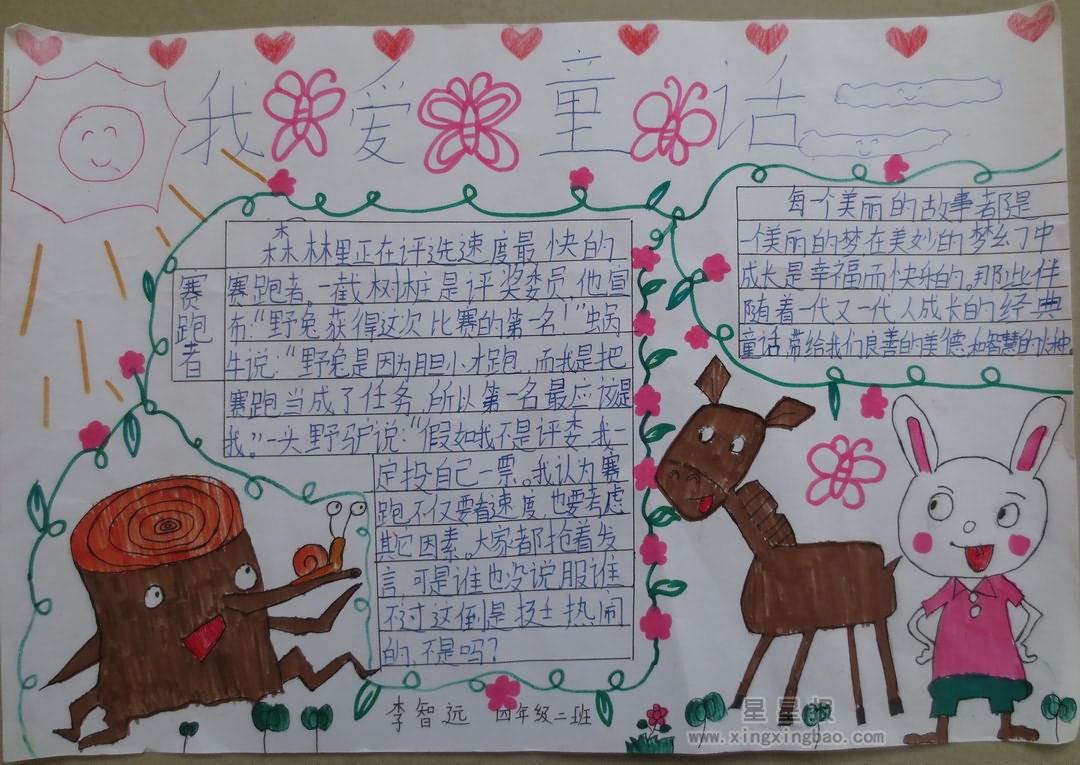 我爱童话
赛跑者
森林里正在评选速度最快的
赛跑者。一截树桩是评奖委员,他宣
布:“野兔获得这次比赛的第一名!”蜗
牛说:“野兔是因为胆小才跑,而我是把
赛跑当成了任务,所以第一名最应该是
我。”一头野驴说:“假如我不是评委,我一
定投自己一票。我认为赛
跑不仅要看速度,也要考虑
其它因素。大家都抢着发
言,可是谁也没说服谁
不过这倒是挺热闹
的,不是吗?
每个美丽的故事都是
一个美丽的梦在美妙的梦幻中
成长是幸福而快乐的。那些伴
随着一代又一代人成长的经典
童话,带给我们良善的美德和智慧的火种。
李智远 四年级二班
星星报
www.xingxingbao.com